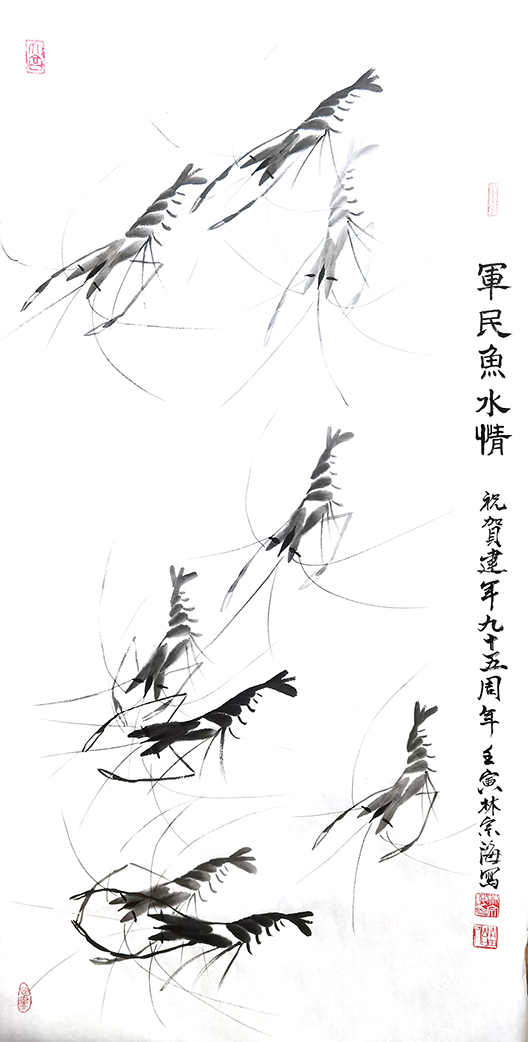 軍民魚水情
祝賀建軍九十五周年 壬寅林宗海寫